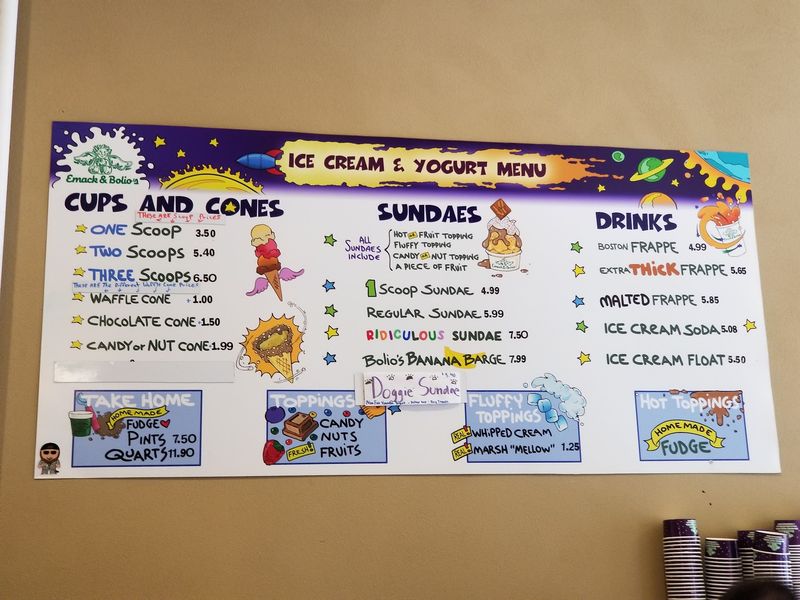 Emack & Bolio's
ICE CREAM & YOGURT MENU
CUPS AND CONES
THESE ARE SCOOP PRICES
ONE SCOOP 3.50
TWO SCOOPS 5.40
THREE SCOOPS 6.50
THESE ARE THE DIFFERENT WAFFLE CONE PRICES
WAFFLE CONE +1.00
CHOCOLATE CONE +1.50
CANDY or NUT CONE +1.99
SUNDAES
ALL SUNDAES INCLUDE
HOT OR FRUIT TOPPING
FLUFFY TOPPING
CANDY OR NUT TOPPING
A PIECE OF FRUIT
1 SCOOP SUNDAE 4.99
REGULAR SUNDAE 5.99
RIDICULOUS SUNDAE 7.50
BOLIO'S BANANA BARGE 7.99
Doggie Sundae
DRINKS
BOSTON FRAPPE 4.99
EXTRA THICK FRAPPE 5.65
MALTED FRAPPE 5.85
ICE CREAM SODA 5.08
ICE CREAM FLOAT 5.50
TAKE HOME
HOMEMADE
FUDGE
PINTS 7.50
QUARTS 11.90
TOPPINGS
CANDY
NUTS
FRESH! FRUITS
FLUFFY
TOPPINGS
REAL! WHIPPED CREAM
REAL! MARSH "MELLOW" 1.25
HOT TOPPINGS
HOMEMADE
FUDGE